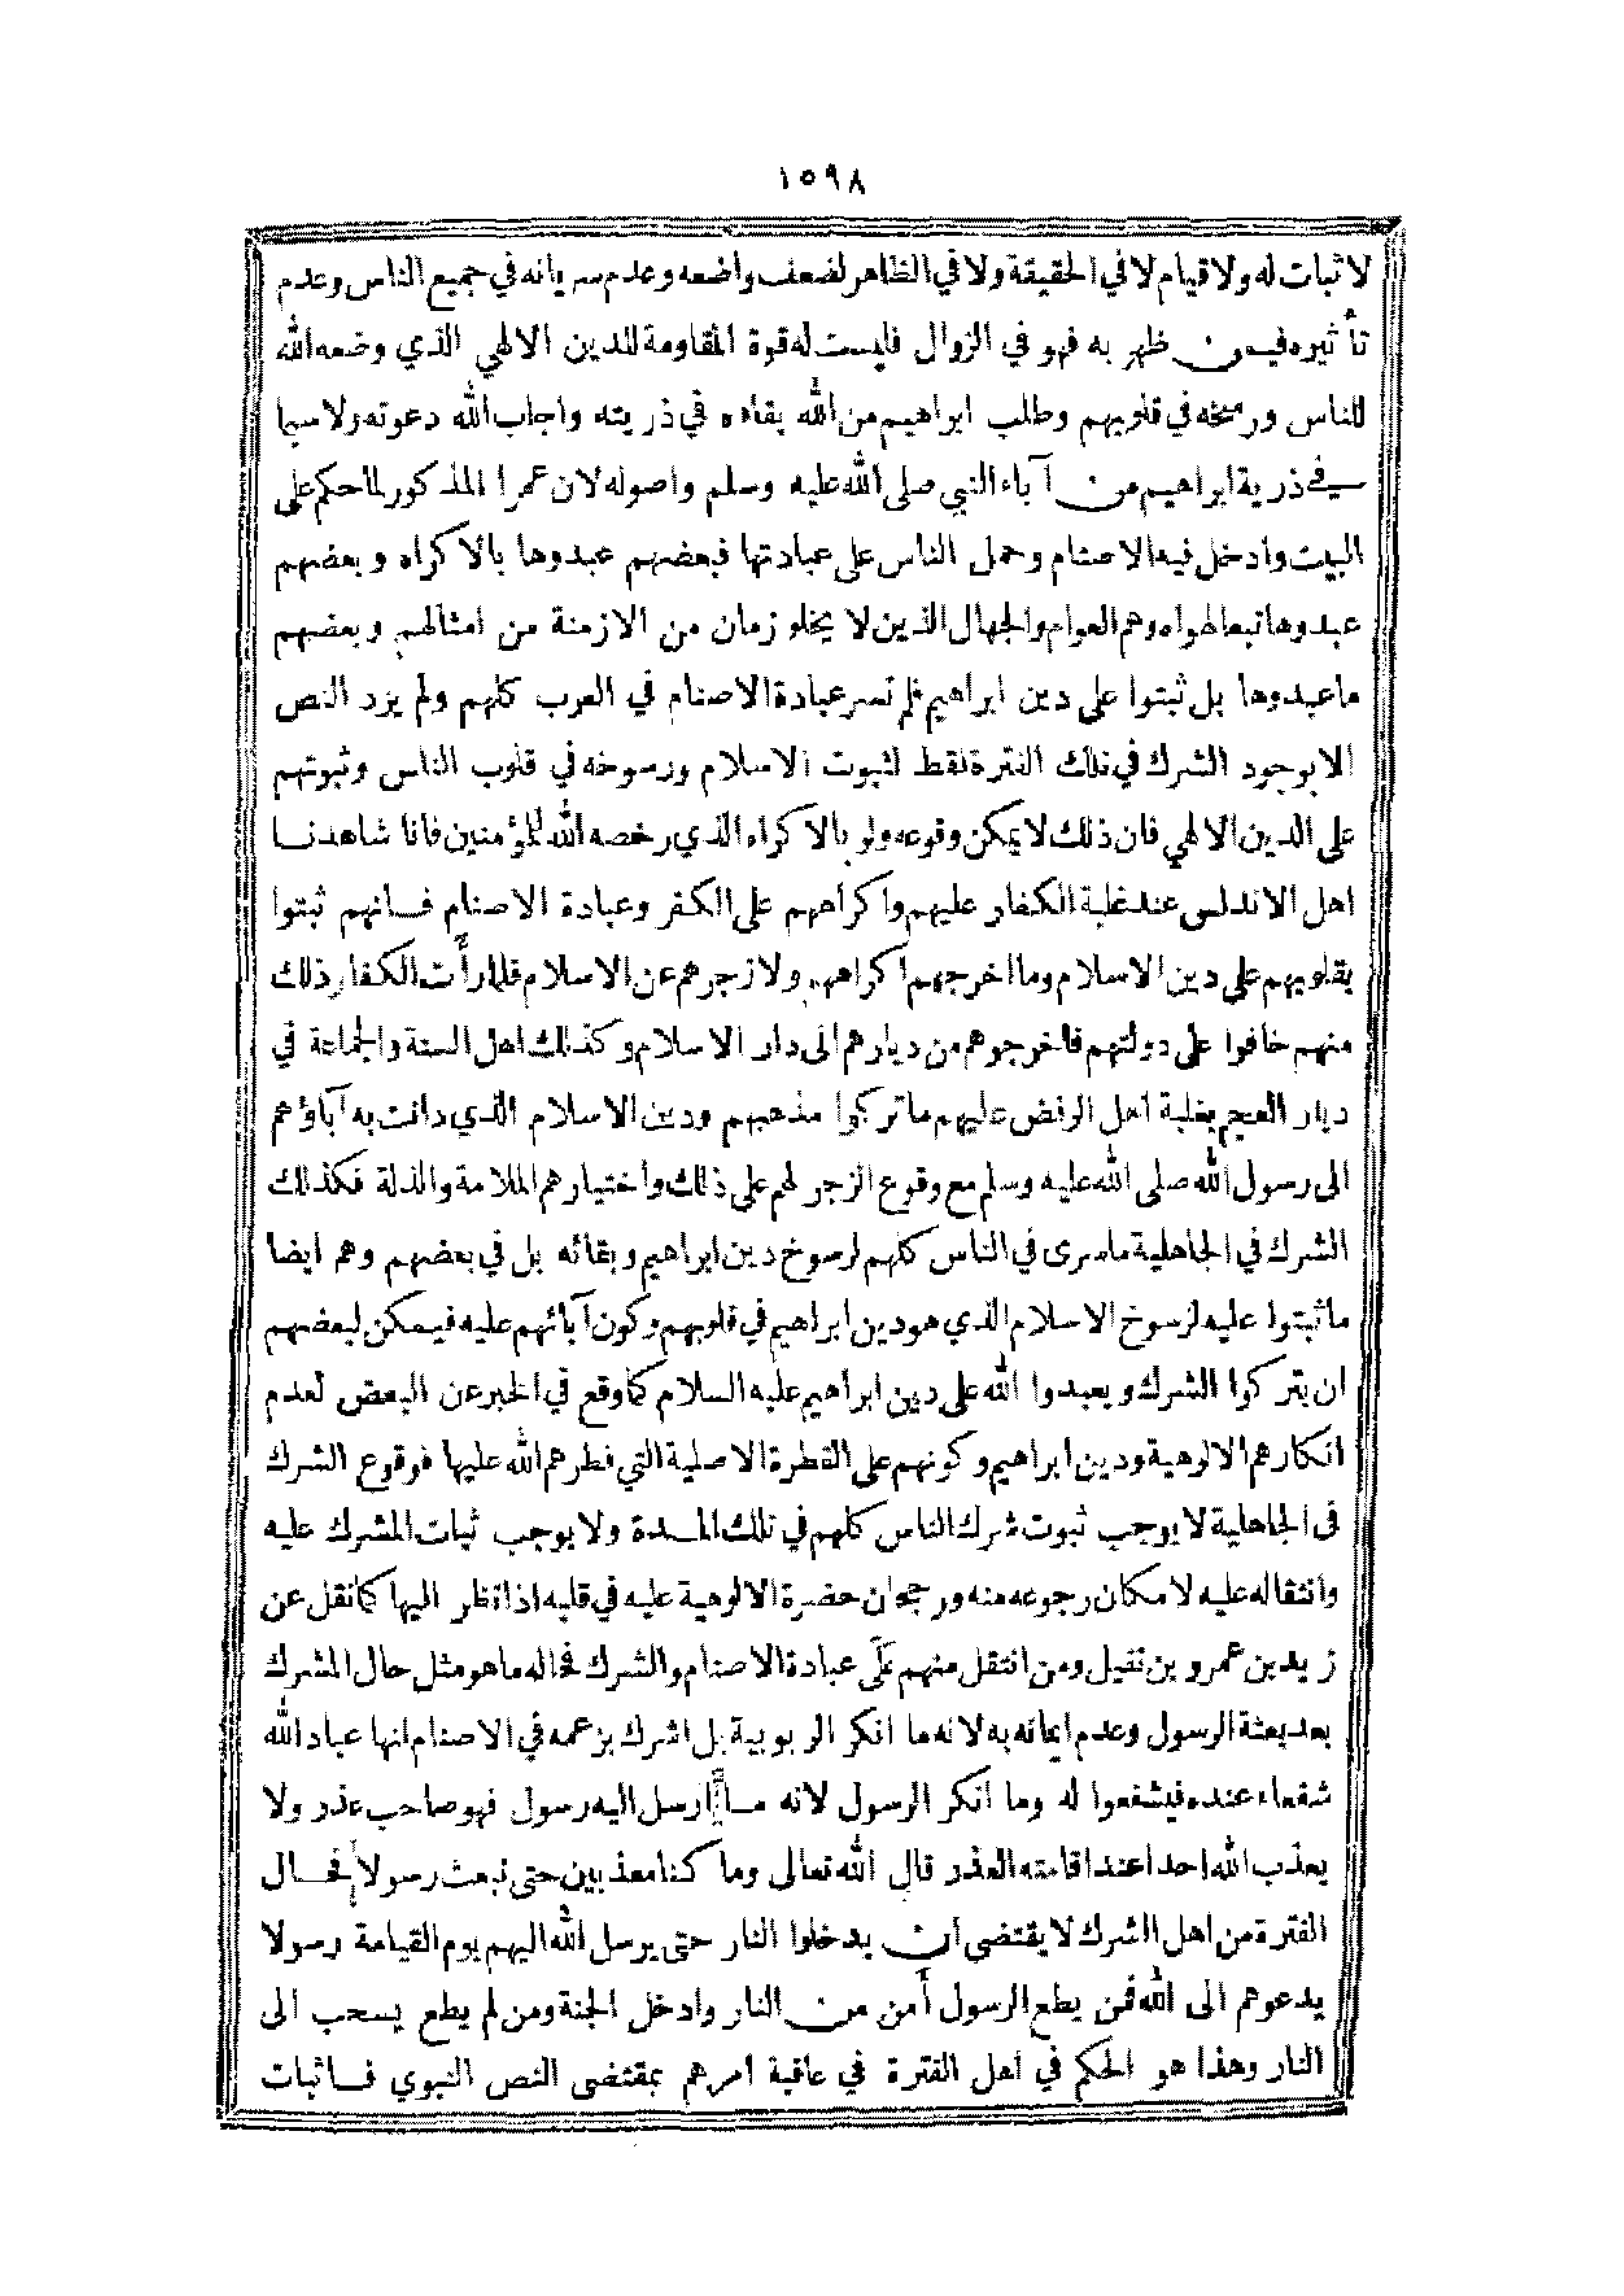 ١٥٩٨
لا ثبات له ولا قيام لا في الحقيقة ولا في الظاهر لضعف واضعه وعدم سريانه في جميع الناس وعدم
تأثيره فيمن ظهر به فهو في الزوال فليست له قوة المقاومة للدين الالهي الذي وضعه الله
للناس ورسخه في قلوبهم وطلب ابراهيم من الله بقاءه في ذريته واجاب الله دعوته ولا سيما
في ذرية ابراهيم من آباء النبي صلى الله عليه وسلم واصوله لان عمرا المذكور لما حكم على
البيت وادخل فيه الاصنام وحمل الناس على عبادتها فبعضهم عبدوها بالاكراه وبعضهم
عبدوها تبعا لهواه وهم العوام والجهال الذين لا يخلو زمان من الازمنة من امثالهم وبعضهم
ما عبدوها بل ثبتوا على دين ابراهيم فلم تسر عبادة الاصنام في العرب كلهم ولم يرد النص
الا بوجود الشرك في تلك الفترة فقط لثبوت الاسلام ورسوخه في قلوب الناس وثبوتهم
على الدين الالهي فان ذلك لا يمكن وقوعه ولو بالاكراه الذي رخصه الله للمؤمنين فانا شاهدنا
اهل الاندلس عند غلبة الكفار عليهم واكراههم على الكفر وعبادة الاصنام فانهم ثبتوا
بقلوبهم على دين الاسلام وما اخرجهم اكراههم ولا زجرهم عن الاسلام فلما رأت الكفار ذلك
منهم خافوا على دولتهم فاخرجوهم من ديارهم الى دار الاسلام وكذلك اهل السنة والجماعة في
ديار العجم بغلبة اهل الرفض عليهم ما تركوا مذهبهم ودين الاسلام الذي دانت به آباؤهم
الى رسول الله صلى الله عليه وسلم مع وقوع الزجر لهم على ذلك واختيارهم الملامة والذلة فكذلك
الشرك في الجاهلية ما سرى في الناس كلهم لرسوخ دين ابراهيم وبقائه بل في بعضهم وهم ايضا
ما ثبتوا عليه لرسوخ الاسلام الذي هو دين ابراهيم في قلوبهم وكون آبائهم عليه فيمكن لبعضهم
ان يتركوا الشرك ويعبدوا الله على دين ابراهيم عليه السلام كما وقع في الخبر عن البعض لعدم
انكارهم الالوهية ودين ابراهيم وكونهم على الفطرة الاصلية التي فطرهم الله عليها فوقوع الشرك
في الجاهلية لا يوجب ثبوت شرك الناس كلهم في تلك المدة ولا يوجب ثبات المشرك عليه
وانتقاله عليه لامكان رجوعه منه ورجحان حضرة الالوهية عليه في قلبه اذا نظر اليها كما نقل عن
زيد بن عمرو بن نفيل ومن انتقل منهم على عبادة الاصنام والشرك فحاله ما هو مثل حال المشرك
بعد بعثة الرسول وعدم ايمانه به لانه ما انكر الربوبية بل اشرك بزعمه في الاصنام انها عباد الله
شفعاء عنده فيشفعوا له وما انكر الرسول لانه ما ارسل اليه رسول فهو صاحب عذر ولا
يعذب الله احدا عند اقامته العذر قال الله تعالى وما كنا معذبين حتى نبعث رسولا فحال
الفترة من اهل الشرك لا يقتضى ان يدخلوا النار حتى يرسل الله اليهم يوم القيامة رسولا
يدعوهم الى الله فمن يطع الرسول أمن من النار وادخل الجنة ومن لم يطع يسحب الى
النار وهذا هو الحكم في اهل الفترة في عاقبة امرهم بمقتضى النص النبوي فاثبات